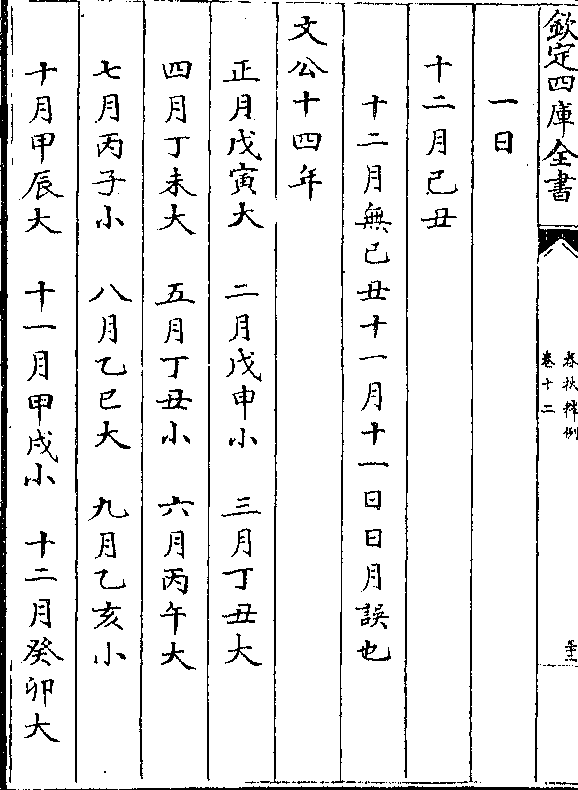 欽定四庫全書
春秋釋例
卷十二
一日
十二月己丑
十二月無己丑十一月十一日日月誤也
文公十四年
正月戊寅大 二月戊申小 三月丁丑大
四月丁未大 五月丁丑小 六月丙午大
七月丙子小 八月乙巳大 九月乙亥小
十月甲辰大 十一月甲戌小 十二月癸卯大